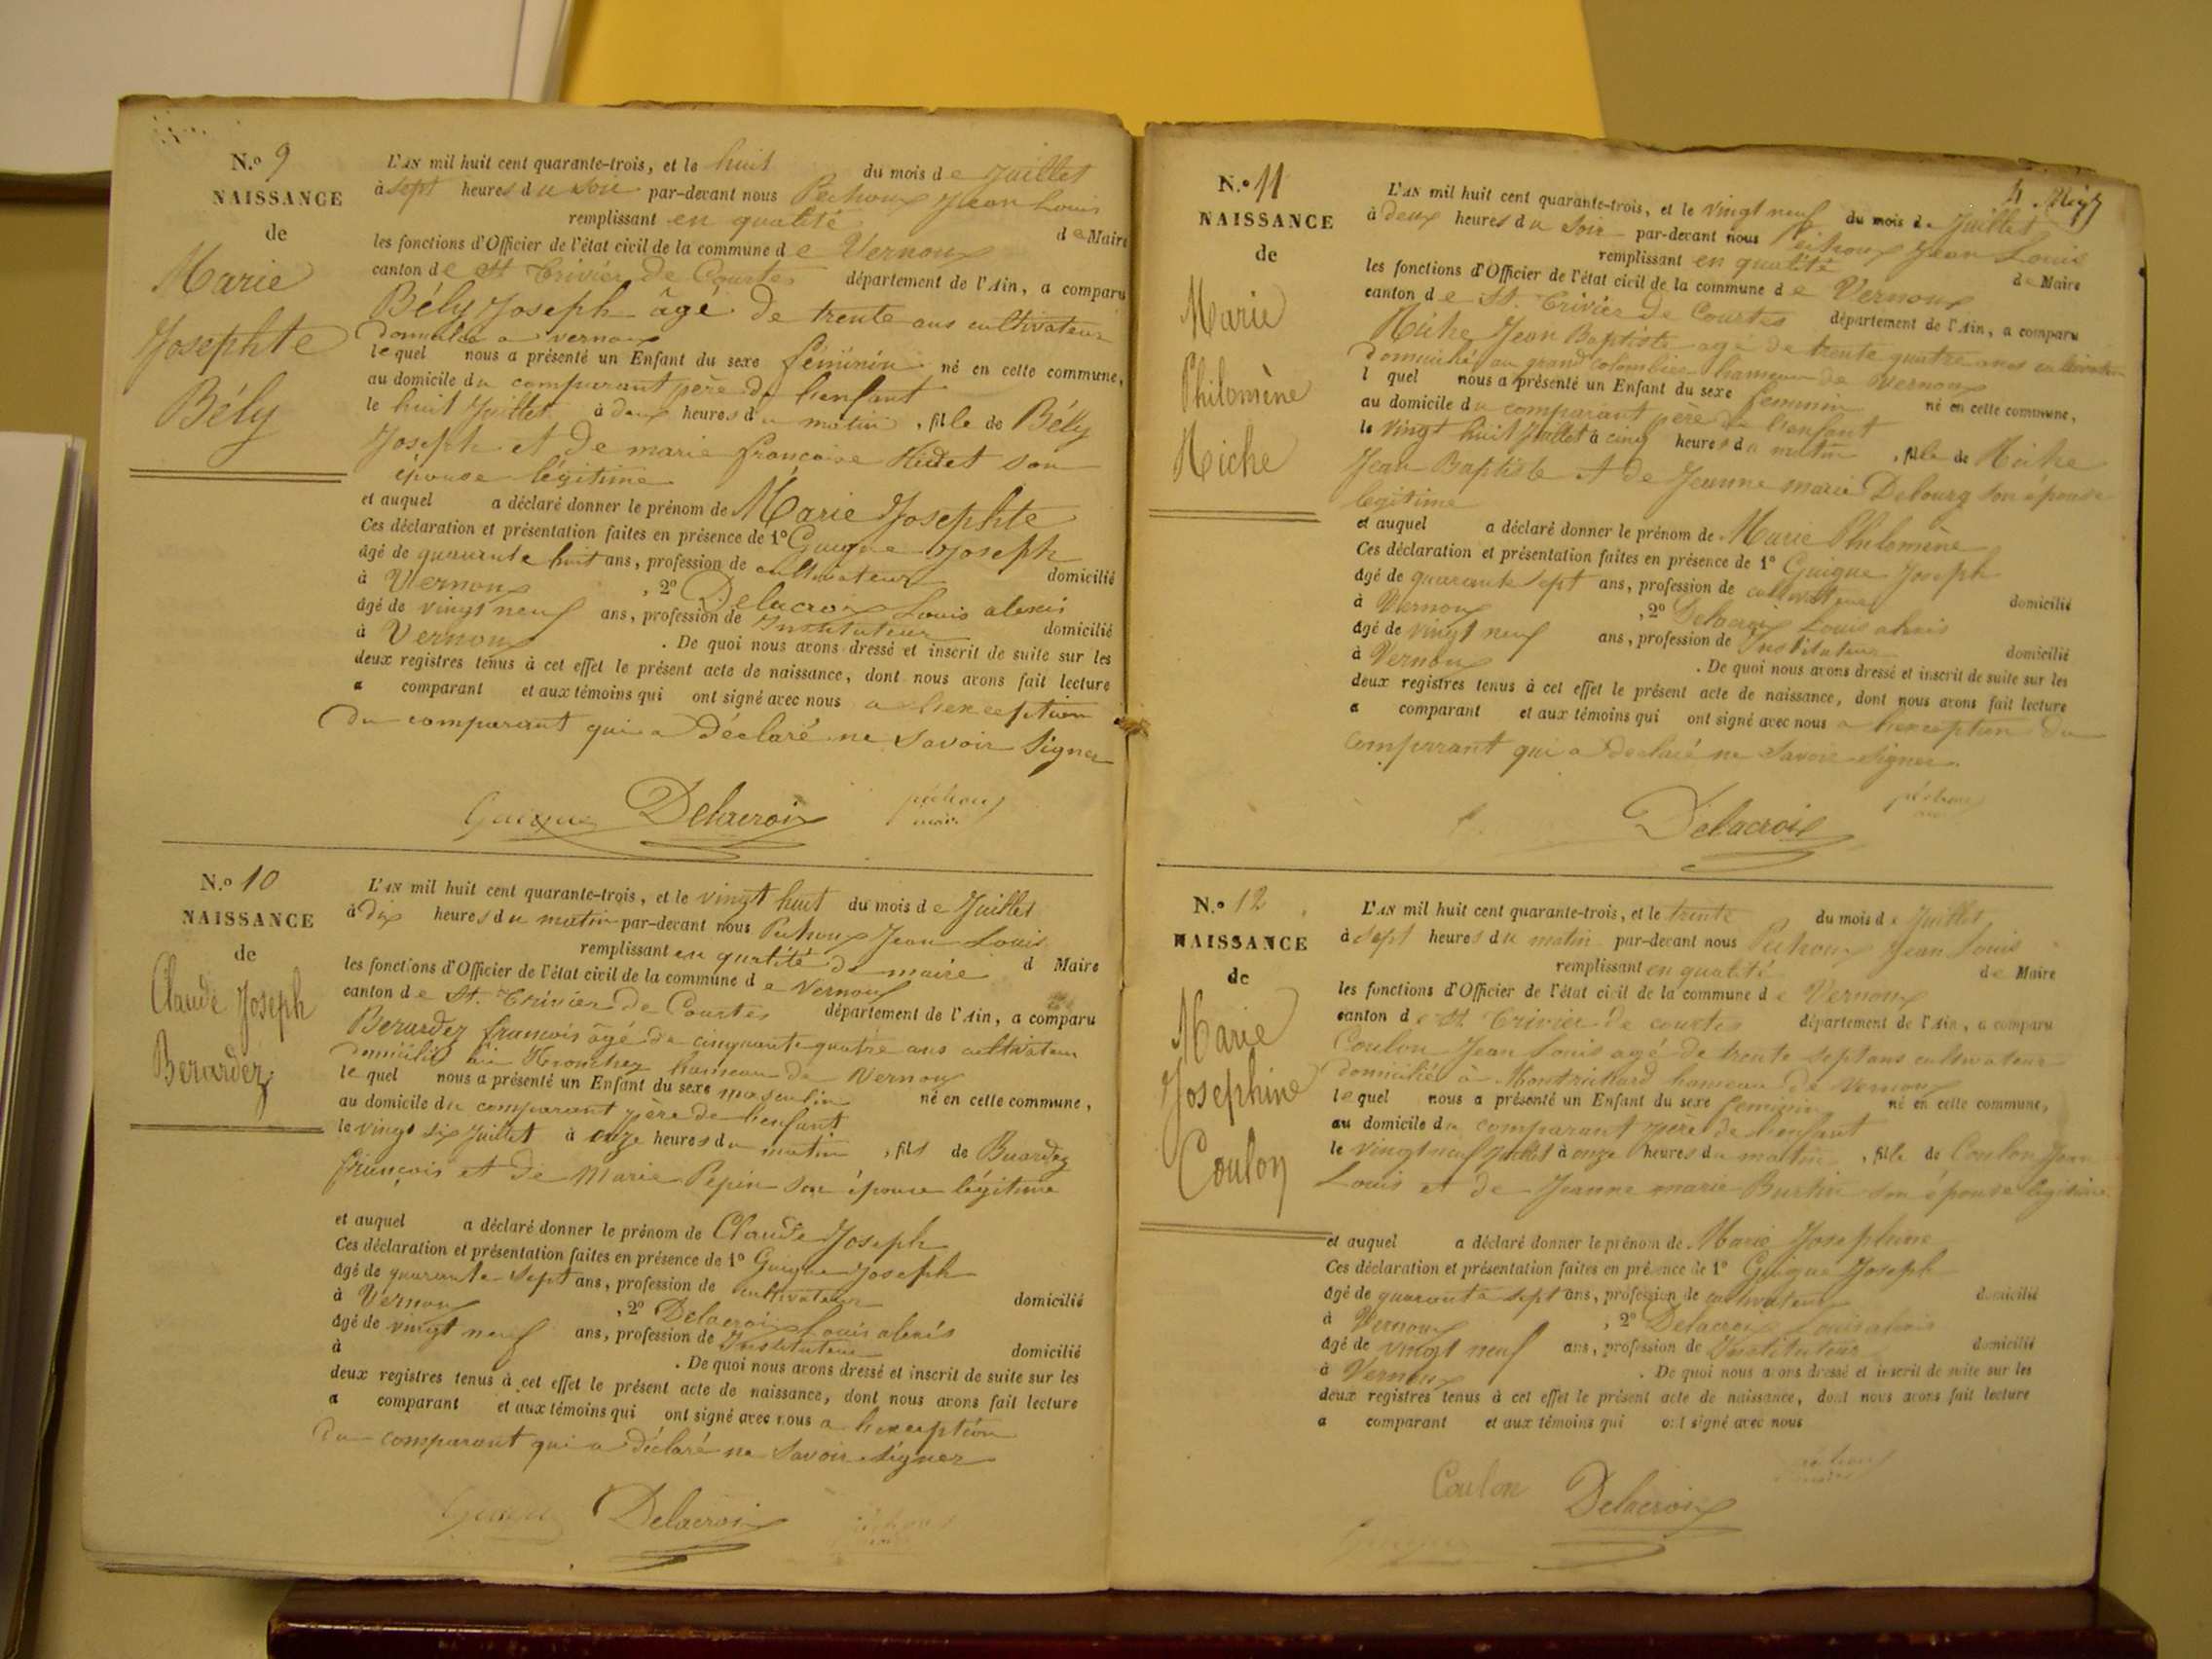 N.º 9
NAISSANCE
de
Marie
Josephte
Bély
L'AN mil huit cent quarante-trois, et le huit du mois de Juillet
à sept heures du soir par-devant nous Pechoux Jean Louis
remplissant en qualité de Maire
les fonctions d'Officier de l'état civil de la commune de Vernoux
canton de St Trivier de Courtes département de l'Ain, a comparu
Bély Joseph âgé de trente ans cultivateur
domicilié a vernoux
lequel nous a présenté un Enfant du sexe féminin né en cette commune,
au domicile du comparant père de l'enfant
le huit Juillet à deux heures du matin, fille de Bély
Joseph et de marie françoise son
épouse légitime
et auquel a déclaré donner le prénom de Marie Josephte
Ces déclaration et présentation faites en présence de 1º Guigue Joseph
âgé de quarante huit ans, profession de cultivateur domicilié
à Vernoux, 2º Delacroix Louis alexis
âgé de vingt neuf ans, profession de Instituteur domicilié
à Vernoux. De quoi nous avons dressé et inscrit de suite sur les
deux registres tenus à cet effet le présent acte de naissance, dont nous avons fait lecture
a comparant et aux témoins qui ont signé avec nous a l'exception
du comparant qui a déclaré ne savoir signer
Guigue Delacroix péchoux
maire
N.º 10
NAISSANCE
de
Claude Joseph
Berardez
L'AN mil huit cent quarante-trois, et le vingt huit du mois de Juillet
à dix heures du matin par-devant nous Pechoux Jean Louis
remplissant en qualité de maire d Maire
les fonctions d'Officier de l'état civil de la commune de Vernoux
canton de St. Trivier de Courtes département de l'Ain, a comparu
Berardez françois âgé de cinquante quatre ans cultivateur
domicilié hameau de Vernoux
lequel nous a présenté un Enfant du sexe masculin né en cette commune,
au domicile du comparant père de l'enfant
le vingt six Juillet à onze heures du matin, fils de Berardez
françois et de Marie Pepin son épouse légitime
et auquel a déclaré donner le prénom de Claude Joseph
Ces déclaration et présentation faites en présence de 1º Guigue Joseph
âgé de quarante sept ans, profession de cultivateur domicilié
à Vernoux, 2º Delacroix Louis alexis
âgé de vingt neuf ans, profession de Instituteur domicilié
à . De quoi nous avons dressé et inscrit de suite sur les
deux registres tenus à cet effet le présent acte de naissance, dont nous avons fait lecture
a comparant et aux témoins qui ont signé avec nous a l'exception
du comparant qui a déclaré ne savoir signer
Guigue Delacroix
N.º 11
NAISSANCE
de
Marie
Philomène
Niche
L'AN mil huit cent quarante-trois, et le vingt neuf du mois de Juillet
à deux heures du soir par-devant nous Péchoux Jean Louis
remplissant en qualité de Maire
les fonctions d'Officier de l'état civil de la commune de Vernoux
canton de St. Trivier de Courtes département de l'Ain, a comparu
Niche Jean Baptiste agé de trente quatre ans cultivateur
domicilié au grand colombier hameau de Vernoux
l quel nous a présenté un Enfant du sexe feminin né en cette commune,
au domicile du comparant père de l'enfant
le vingt huit Juillet à cinq heures du matin, fille de Niche
Jean Baptiste et de Jeanne marie Debourg son épouse
legitime
et auquel a déclaré donner le prénom de Marie Philomène
Ces déclaration et présentation faites en présence de 1º Guigue Joseph
âgé de quarante sept ans, profession de cultivateur domicilié
à Vernoux, 2º Delacroix Louis alexis
âgé de vingt neuf ans, profession de Instituteur domicilié
à Vernoux. De quoi nous avons dressé et inscrit de suite sur les
deux registres tenus à cet effet le présent acte de naissance, dont nous avons fait lecture
a comparant et aux témoins qui ont signé avec nous a l'exception du
comparant qui a déclaré ne savoir signer.
Delacroix péchoux
N.º 12
NAISSANCE
de
Marie
Josephine
Coulon
L'AN mil huit cent quarante-trois, et le trente du mois de Juillet
à sept heures du matin par-devant nous Péchoux Jean Louis
remplissant en qualité de Maire
les fonctions d'Officier de l'état civil de la commune de Vernoux
canton de St Trivier de courtes département de l'Ain, a comparu
Coulon Jean Louis agé de trente sept ans cultivateur
domicilié à Montrichard hameau de Vernoux
lequel nous a présenté un Enfant du sexe feminin né en cette commune,
au domicile du comparant père de l'enfant
le vingt neuf Juillet à onze heures du matin, fille de Coulon Jean
Louis et de Jeanne marie Burtin son épouse légitime
et auquel a déclaré donner le prénom de Marie Josephine
Ces déclaration et présentation faites en présence de 1º Guigue Joseph
âgé de quarante sept ans, profession de cultivateur domicilié
à Vernoux, 2º Delacroix Louis alexis
âgé de vingt neuf ans, profession de Instituteur domicilié
à Vernoux. De quoi nous avons dressé et inscrit de suite sur les
deux registres tenus à cet effet le présent acte de naissance, dont nous avons fait lecture
a comparant et aux témoins qui ont signé avec nous
Coulon Delacroix